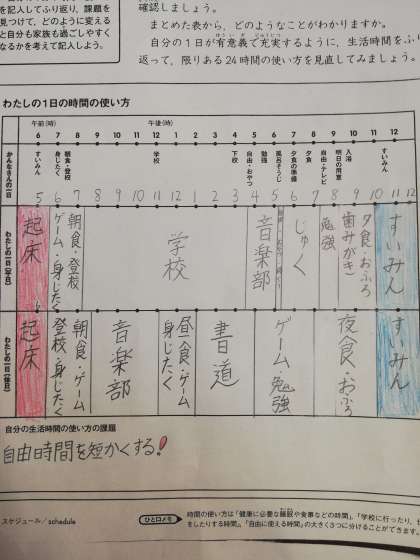 を記入してふり返り、課題を
見つけて、どのように変える
と自分も家族も過ごしやすく
なるかを考えて記入しよう。
確認しましょう。
まとめた表から、どのようなことがわかりますか。
自分の1日が有意義で充実するように、生活時間をふり
返って、限りある24時間の使い方を見直してみましょう。
わたしの1日の時間の使い方
午前(時) 午後(時)
6 7 8 9 10 11 12 1 2 3 4 5 6 7 8 9 10 11 12
かんなさんの一日
すいみん
身じたく
朝食・登校
学校
下校
自由・おやつ
勉強
風呂そうじ
夕食の準備
夕食
自由・テレビ
明日の用意
入浴
すいみん
5 6 7 8 9 10 11 12 1 2 3 4 5 6 7 8 9 10 11 12
わたしの一日(平日)
起床
ゲーム・身じたく
朝食・登校
学校
音楽部
じゅく
勉強
歯みがき
夕食・おふろ
すいみん
6
わたしの一日(休日)
起床
登校・身じたく
朝食・ゲーム
音楽部
身じたく
昼食・ゲーム
書道
ゲーム・勉強
夜食・おふろ
すいみん
自分の生活時間の使い方の課題
自由時間を短かくする!
スケジュール/schedule
ひと口メモ
時間の使い方は「健康に必要な睡眠や食事などの時間」、「学校に行ったり、
をしたりする時間」、「自由に使える時間」の大きく3つに分けることができます。